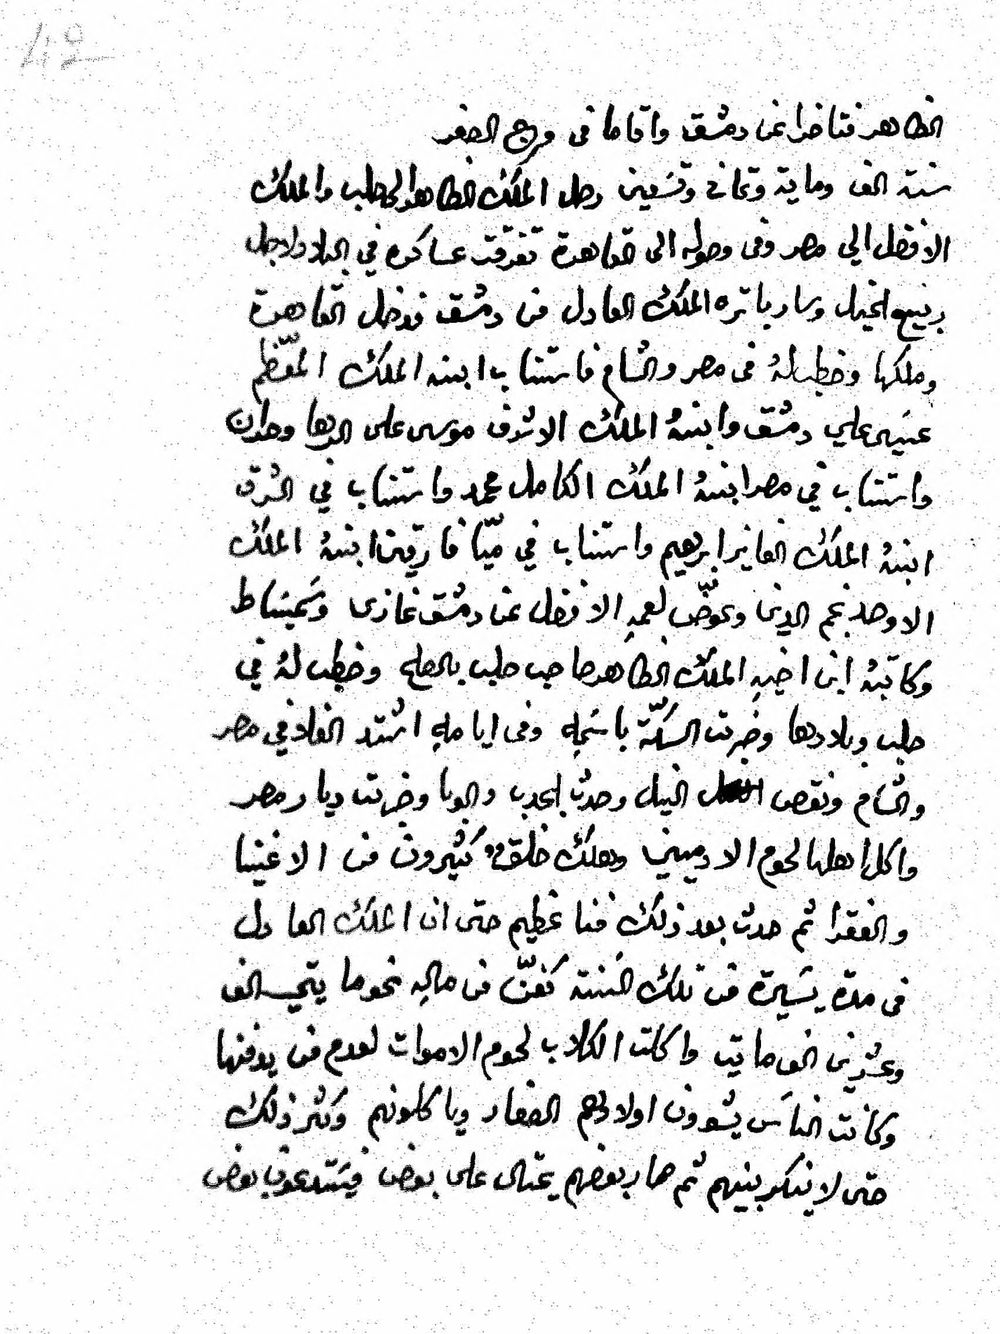 42
الظاهر فتاخرا عن دمشق واقاما فى مرج الصفر
سنة الف وماية وثمانى وتسعين رحل الملك الظاهر الى حلب والملك
الافضل الي مصر وفى وصوله الى القاهرة تفرقت عساكره في البلاد لاجل
ربيع الخيل وسار باثره الملك العادل من دمشق فدخل القاهرة
وملكها وخطب لهُ فى مصر والشام فاستناب ابنه الملك المعّظم
عيسى علي دمشق وابنهُ الملك الاشرف موسى على الرها وحران
واستناب في مصر ابنهُ الملك الكامل محمد واستناب في الشرق
ابنهُ الملك الفايز ابرهيم واستناب في ميّا فارقين ابنهُ الملك
الاوحد نجم الدين وعوّض لعمهِ الافضل عن دمشق غازى وسميساط
وكاتبهُ ابن اخيهِ الملك الظاهر صاحب حلب بالصلح وخطب لهُ في
حلب وبلادها وضربت السكّة باسمهِ وفى ايامهِ اشتد الغلا في مصر
والشام ونقص النيل وحدث الجدب والوبا وخربت ديار مصر
واكل اهلها لحوم الادميين وهلك خلقٌ كثيرون من الاغنيا
والفقرا ثم حدث بعد ذلك فنا عظيم حتى ان الملك العادل
فى مدة يسَيرة من تلك السَنة كفنّ من مالهِ نحو مايتي الف
وعشرين الف مايت واكلت الكلاب لحوم الاموات لعدم من يدفنها
وكانت الناسَ يشوون اولادهم الصغار وياكلونهم وكثر ذلك
حتى لا ينكر بينهم ثم صار بعضهم يحتال على بعض فيستدعون بعض